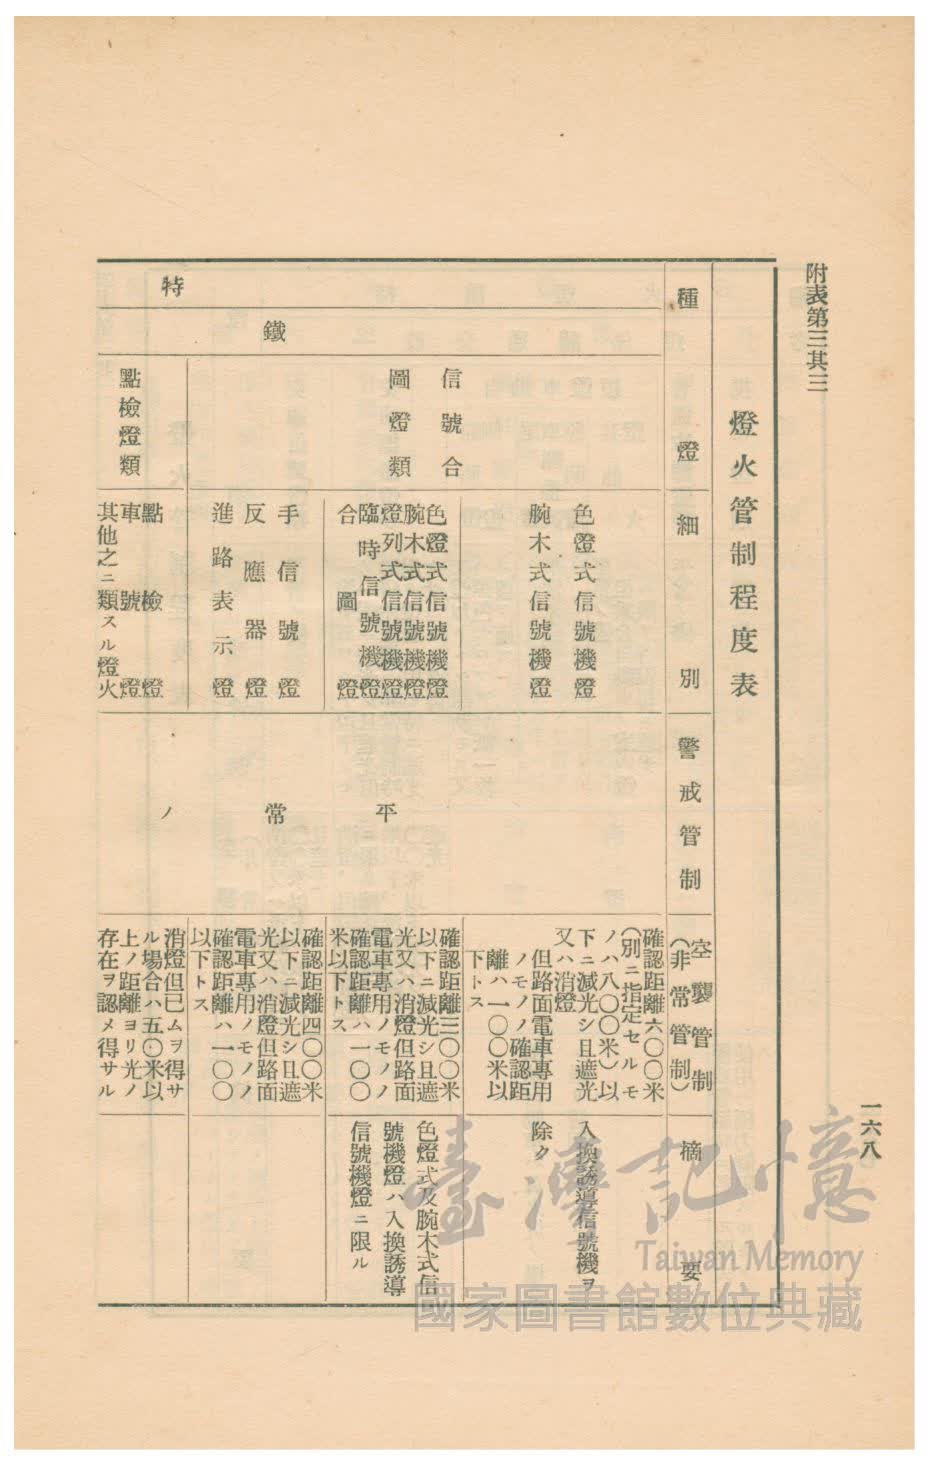 附表第三其三
燈火管制程度表
種燈細別
警戒管制
空襲管制
(非常管制)
摘要
特
鐵
信號合
圖燈類
色燈式信號機燈
腕木式信號機燈
平常ノ
確認距離六〇〇米
(別ニ指定セルモ
ノハ八〇〇米)以
下ニ減光シ且遮光
又ハ消燈
但路面電車專用
ノモノノ確認距
離ハ一〇〇米以
下トス
入換誘導信號機ヲ
除ク
色燈式信號機燈
腕木式信號機燈
燈列式信號機燈
臨時信號機燈
合圖燈
確認距離三〇〇米
以下ニ減光シ且遮
光又ハ消燈但路面
電車專用ノモノノ
確認距離ハ一〇〇
米以下トス
色燈式及腕木式信
號機燈ハ入換誘導
信號機燈ニ限ル
手信號燈
反應器燈
進路表示燈
確認距離四〇〇米
以下ニ減光シ且遮
光又ハ消燈但路面
電車專用ノモノノ
確認距離ハ一〇〇
以下トス
點檢燈類
點檢燈
車號燈
其他之ニ類スル燈火
消燈但已ムヲ得サ
ル場合ハ五〇米以
上ノ距離ヨリ光ノ
存在ヲ認メ得サル
一六八
臺灣記憶
Taiwan Memory
國家圖書館數位典藏